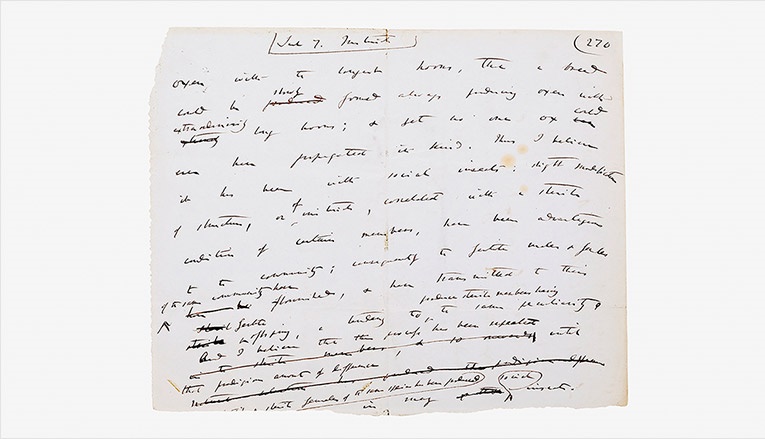 Sect 7. Instinct (270
oxen with the longest horns, that a breed
slowly
could be produced formed always producing oxen with
extraordinarily long horns; & yet no one ox could
ever have propagated its kind. Thus I believe
it has been with social insects: slight modification
of structure, or of instinct, correlated with a sterile
condition of certain members, have been advantageous
to the community; consequently the fertile males & females
of the same community have flourished, & have transmitted to their
produce sterile members having
fertile offspring, a tendency to the same peculiarity
And I believe that this process has been repeated until
that prodigious amount of difference
sterile females of the same species has been produced
in many social insects.